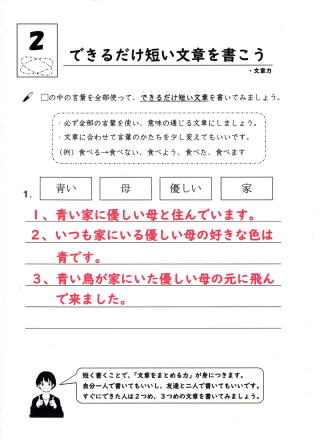 2
できるだけ短い文章を書こう
・文章力
□の中の言葉を全部使って、できるだけ短い文章を書いてみましょう。
・必ず全部の言葉を使い、意味の通じる文章にしましょう。
・文章に合わせて言葉のかたちを少し変えてもいいです。
（例）食べる→食べない、食べよう、食べた、食べます
1. 青い 母 優しい 家
１、青い家に優しい母と住んでいます。
２、いつも家にいる優しい母の好きな色は
青です。
３、青い鳥が家にいた優しい母の元に飛ん
で来ました。
短く書くことで、「文章をまとめる力」が身につきます。
自分一人で書いてもいいし、友達と二人で書いてもいいです。
すぐにできた人は２つめ、３つめの文章を書いてみましょう。